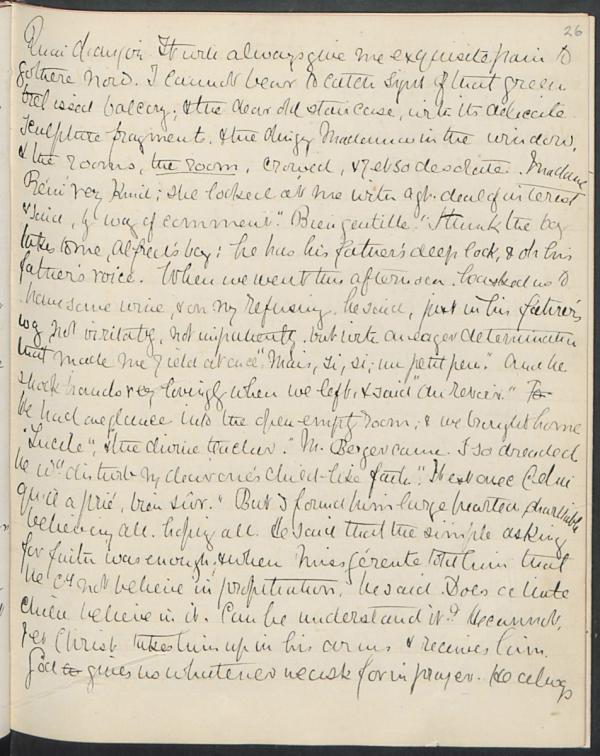 26
Quai d'anjou. It will always give me exquisite pain to
go there now. I cannot bear to catch sight of that green
trellissed balcony; & the dear old staircase, with its delicate
sculpture fragment, & the dingy Madonna in the window,
& the rooms, the room, crowded, & yet so desolate. Madame
Rémi very kind; she looked at me with a gt. deal of interest
& said, by way of comment "Bien gentille." I think the boy
takes to me, Alfred's boy: he has his father's deep look, & oh his
father's voice. When we went this afternoon he asked us to
have some wine, & on my refusing he said, just in his father's
way, not irritably, not impatiently, but with an eager determination
that made me yield at once, "Mais, si, si; un petit peu." And he
shook hands very lovingly when we left, & said "Au Revoir."
We had one glance into the open empty room; & we brought home
"Lucile", & the divine Muchir. "M. Berger came. I so dreaded
he wd disturb my dear one's child-like faith. "Il est avec Celui
qu'il a prié, bien sûr." But I found him large hearted, charitable
believing all, hoping all. He said that the simple asking
for faith was enough, & when Miss gérente told him that
he cd not believe in propitiation, he said. Does a little
child believe in it. Can he understand it? He cannot,
yet Christ takes him up in his arms & receives him.
God gives us whatever we ask for in prayer. He always